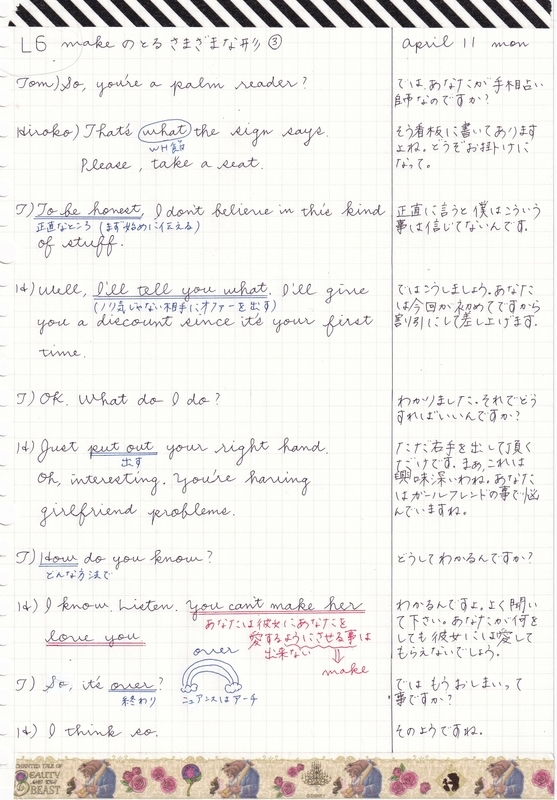 L6 make のとる さまざまな形 ③
april 11 mon
Tom) So, you're a palm reader?
では、あなたが手相占い
師なのですか?
Hiroko) That's what the sign says.
WH節
Please, take a seat.
そう看板に書いてあります
よね。どうぞお掛けに
なって。
T) To be honest, I don't believe in this kind
正直なところ (まず始めに伝える)
of stuff.
正直に言うと僕はこういう
事は信じてないんです。
H) Well, I'll tell you what. I'll give
(ノリ気じゃない相手にオファーを出す)
you a discount since it's your first
time.
ではこうしましょう。あなた
は今回が初めてですから
割引にして差し上げます。
T) OK. What do I do?
わかりました。それでどう
すればいいんですか?
H) Just put out your right hand.
出す
Oh, interesting. You're having
girlfriend problems.
ただ右手を出して頂く
だけです。まぁ、これは
興味深いわね。あなた
はガールフレンドの事で悩
んでいますね。
T) How do you know?
どんな方法で
どうしてわかるんですか?
H) I know. Listen. You can't make her
love you
あなたは彼女にあなたを
愛するようにさせる事は
出来ない
make
わかるんですよ。よく聞い
て下さい。あなたが何を
しても彼女には愛して
もらえないでしょう。
over
T) So, it's over?
終わり
ニュアンスはアーチ
では もうおしまいって
事ですか?
H) I think so.
そのようですね。
ENCHANTED TALE OF
BEAUTY
AND THE
BEAST